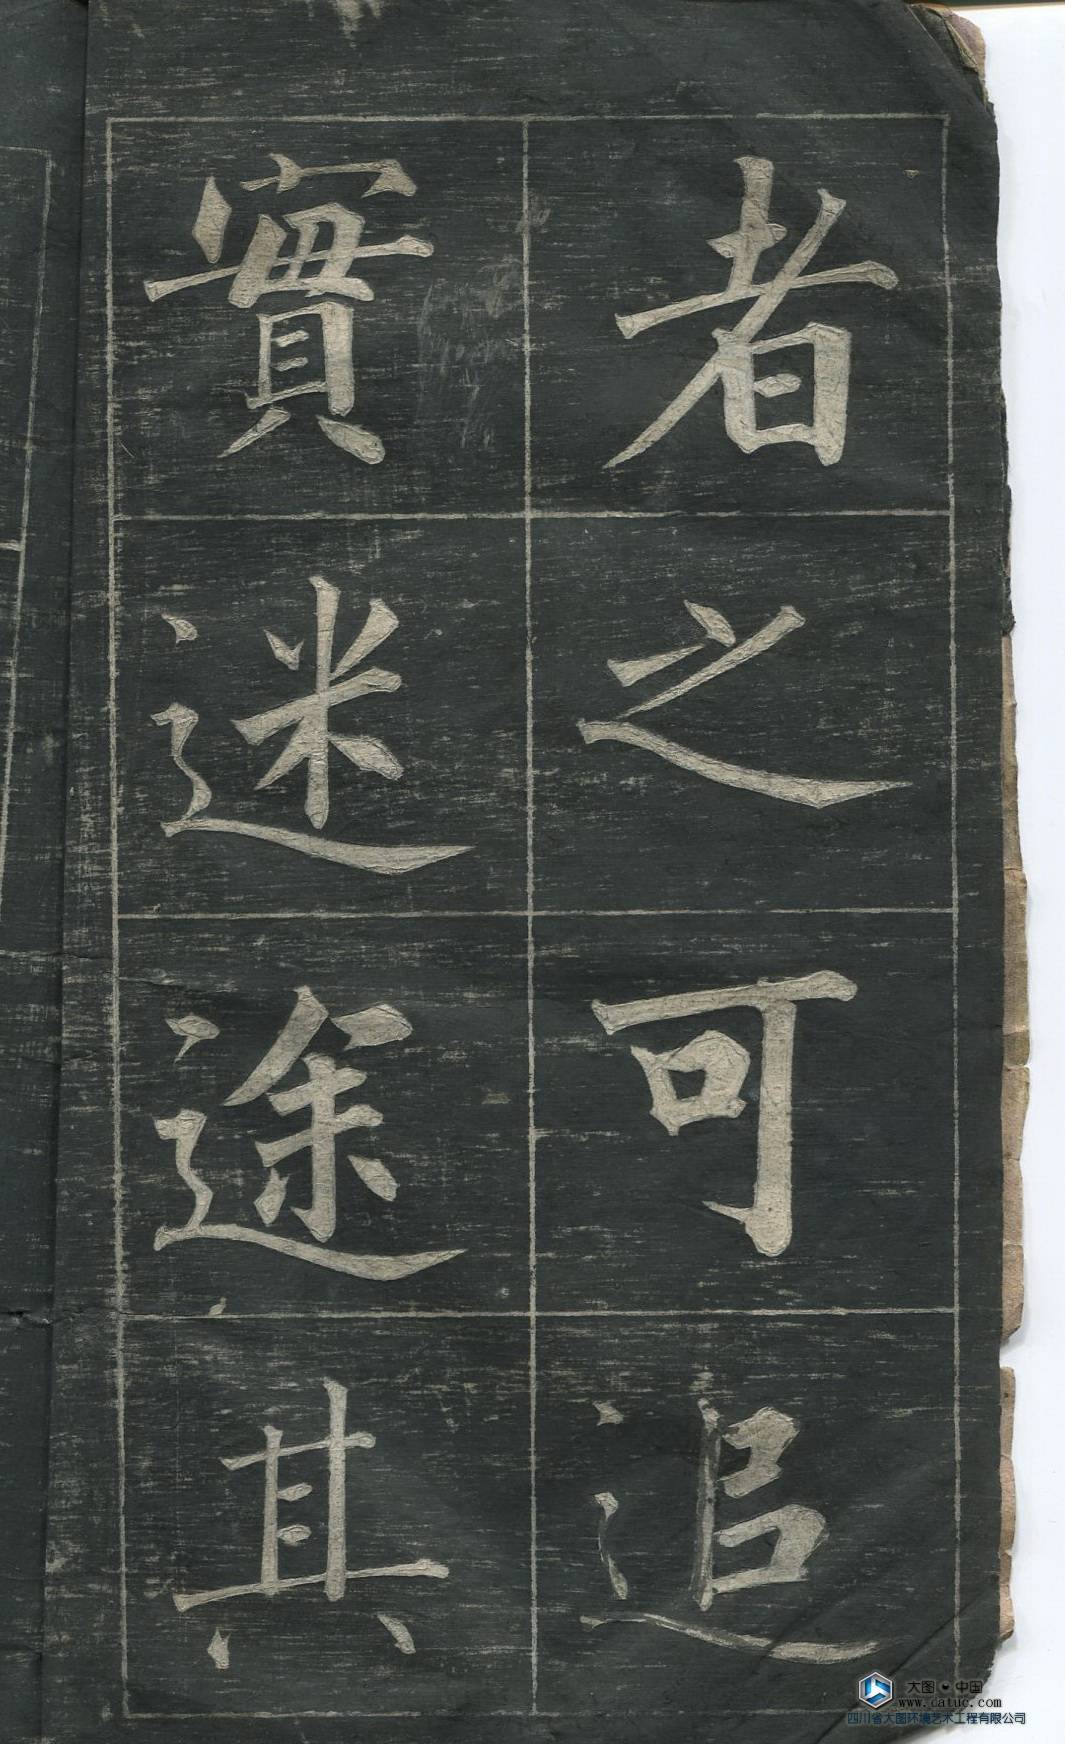 者之可追
實迷途其
大图·中国
www.catuc.com
四川省大图环境艺术工程有限公司